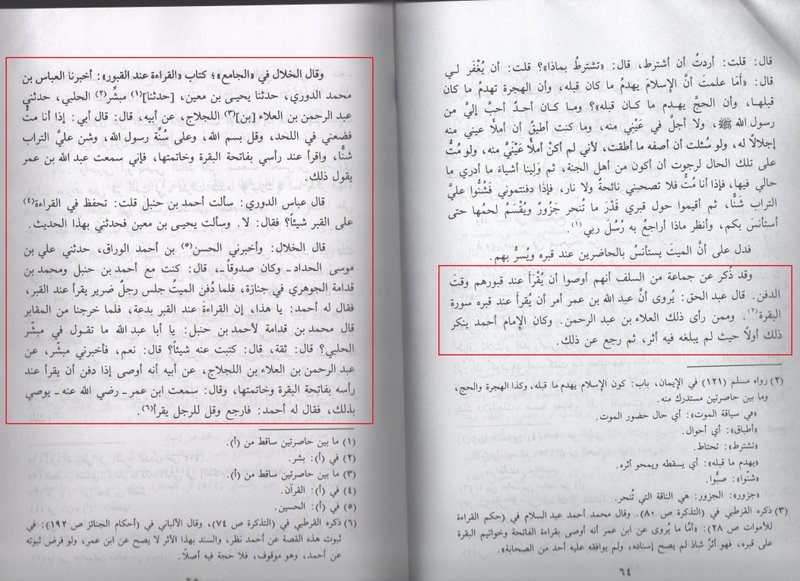 قال: قلت: أردتُ أن أشترط، قال: «تشترطُ بماذا»؟ قلت: أن يُغْفَر لي
قال: «أمَا علمتَ أنَّ الإسلامَ يهدمُ ما كان قبله، وأن الهجرة تهدمُ ما كان
قبلها، وأن الحجَّ يهدم ما كان قبله»؟ وما كان أحدٌ أحبَّ إليَّ من
رسول الله ﷺ، ولا أجلَّ في عَيْني منه، وما كنت أطيقُ أن أملأ عيني منه
إجلالًا له، ولو سُئلت أن أصفه ما أطقت، لأني لم أكنْ أملأ عَيْنَيَّ منه، ولو مُتُّ
على تلك الحال لرجوت أن أكون من أهل الجنة، ثم وَلِينا أشياءَ ما أدري ما
حالي فيها، فإذا أنا مُتُّ فلا تصحبني نائحةٌ ولا نار، فإذا دفنتموني فَشُنُّوا عليَّ
التراب شَنًّا، ثم أقيموا حول قبري قَدْرَ ما تُنحر جَزُورٌ ويُقْسَمُ لحمُها حتى
أستأنسَ بكم، وأنظر ماذا أراجعُ به رُسُلَ ربي (١).
فدل على أنَّ الميتَ يستأنسُ بالحاضرين عند قبره ويُسرُّ بهم.
وقد ذُكر عن جماعة من السلف أنهم أوصوا أن يُقْرَأ عند قبورهم وقتَ
الدفن. قال عبد الحق: يُروى أنَّ عبد الله بن عمر أمر أن يُقرأ عند قبره سورة
البقرة(٢). وممن رأى ذلك العلاء بن عبد الرحمن. وكان الإمام أحمد ينكر
ذلك أولًا حيث لم يبلغه فيه أثر، ثم رجع عن ذلك.
(٢) رواه مسلم (١٢١) في الإيمان، باب: كون الإسلام يهدم ما قبله، وكذا الهجرة والحج،
وما بين حاصرتين مستدرك منه.
«في سياقة الموت»: أي حال حضور الموت.
«أطباق»: أي أحوال.
«تشترط»: تحتاط.
«يهدم ما قبله»: أي يسقطه ويمحو أثره.
«شنّوا»: صبُّوا.
«جزور»: الجزور: هي الناقة التي تُنحر.
(٣) ذكره القرطبي في (التذكرة ص ٨٠). وقال محمد أحمد عبد السلام في (حكم القراءة
للأموات ص ٢٨): «أمّا ما يُروى عن ابن عمر أنه أوصى بقراءة الفاتحة وخواتيم البقرة
على قبره، فهو أثرٌ شاذ لم يصح إسناده، ولم يوافقه عليه أحد من الصحابة».
٦٤
وقال الخلال في «الجامع»؛ كتاب «القراءة عند القبور»: أخبرنا العباس بن
محمد الدوري، حدثنا يحيى بن معين، [حدثنا](١) مبشّر(٢) الحلبي، حدثني
عبد الرحمن بن العلاء [بن](٣) اللجلاج، عن أبيه، قال: قال أبي: إذا أنا متُّ
فضعني في اللحد، وقل بسم الله، وعلى سُنَّة رسول الله، وشن عليَّ التراب
شنًّا، واقرأ عند رأسي بفاتحة البقرة وخاتمتها، فإني سمعت عبد الله بن عمر
يقول ذلك.
قال عباس الدوري: سألت أحمد بن حنبل قلت: تحفظ في القراءة(٤)
على القبر شيئاً؟ فقال: لا. وسألت يحيى بن معين فحدثني بهذا الحديث.
قال الخلال: وأخبرني الحسن(٥) بن أحمد الوراق، حدثني علي بن
موسى الحداد ـ وكان صدوقاً ـ، قال: كنت مع أحمد بن حنبل ومحمد بن
قدامة الجوهري في جنازة، فلما دُفن الميتُ جلس رجلٌ ضرير يقرأ عند القبر،
فقال له أحمد: يا هذا، إن القراءة عند القبر بدعة، فلما خرجنا من المقابر
قال محمد بن قدامة لأحمد بن حنبل: يا أبا عبد الله ما تقول في مبشّر
الحلبي؟ قال: ثقة، قال: كتبت عنه شيئاً؟ قال: نعم، فأخبرني مبشّر، عن
عبد الرحمن بن العلاء بن اللجلاج، عن أبيه أنه أوصى إذا دفن أن يقرأ عند
رأسه بفاتحة البقرة وخاتمتها، وقال: سمعت ابن عمر ـ رضي الله عنه ـ يوصي
بذلك، فقال له أحمد: فارجع وقل للرجل يقرأ(٦).
(١) ما بين حاصرتين ساقط من (أ).
(٢) في (أ): بشر.
(٣) ما بين حاصرتين ساقط من (أ).
(٤) في (أ): القرآن.
(٥) في (أ): الحسين.
(٦) ذكره القرطبي في (التذكرة ص ٧٤)، وقال الألباني في (أحكام الجنائز ص ١٩٢): في
ثبوت هذه القصة عن أحمد نظر، والسند بهذا الأثر لا يصح عن ابن عمر، ولو فرض ثبوته
عن أحمد، وهو موقوف، فلا حجة فيه أصلًا.